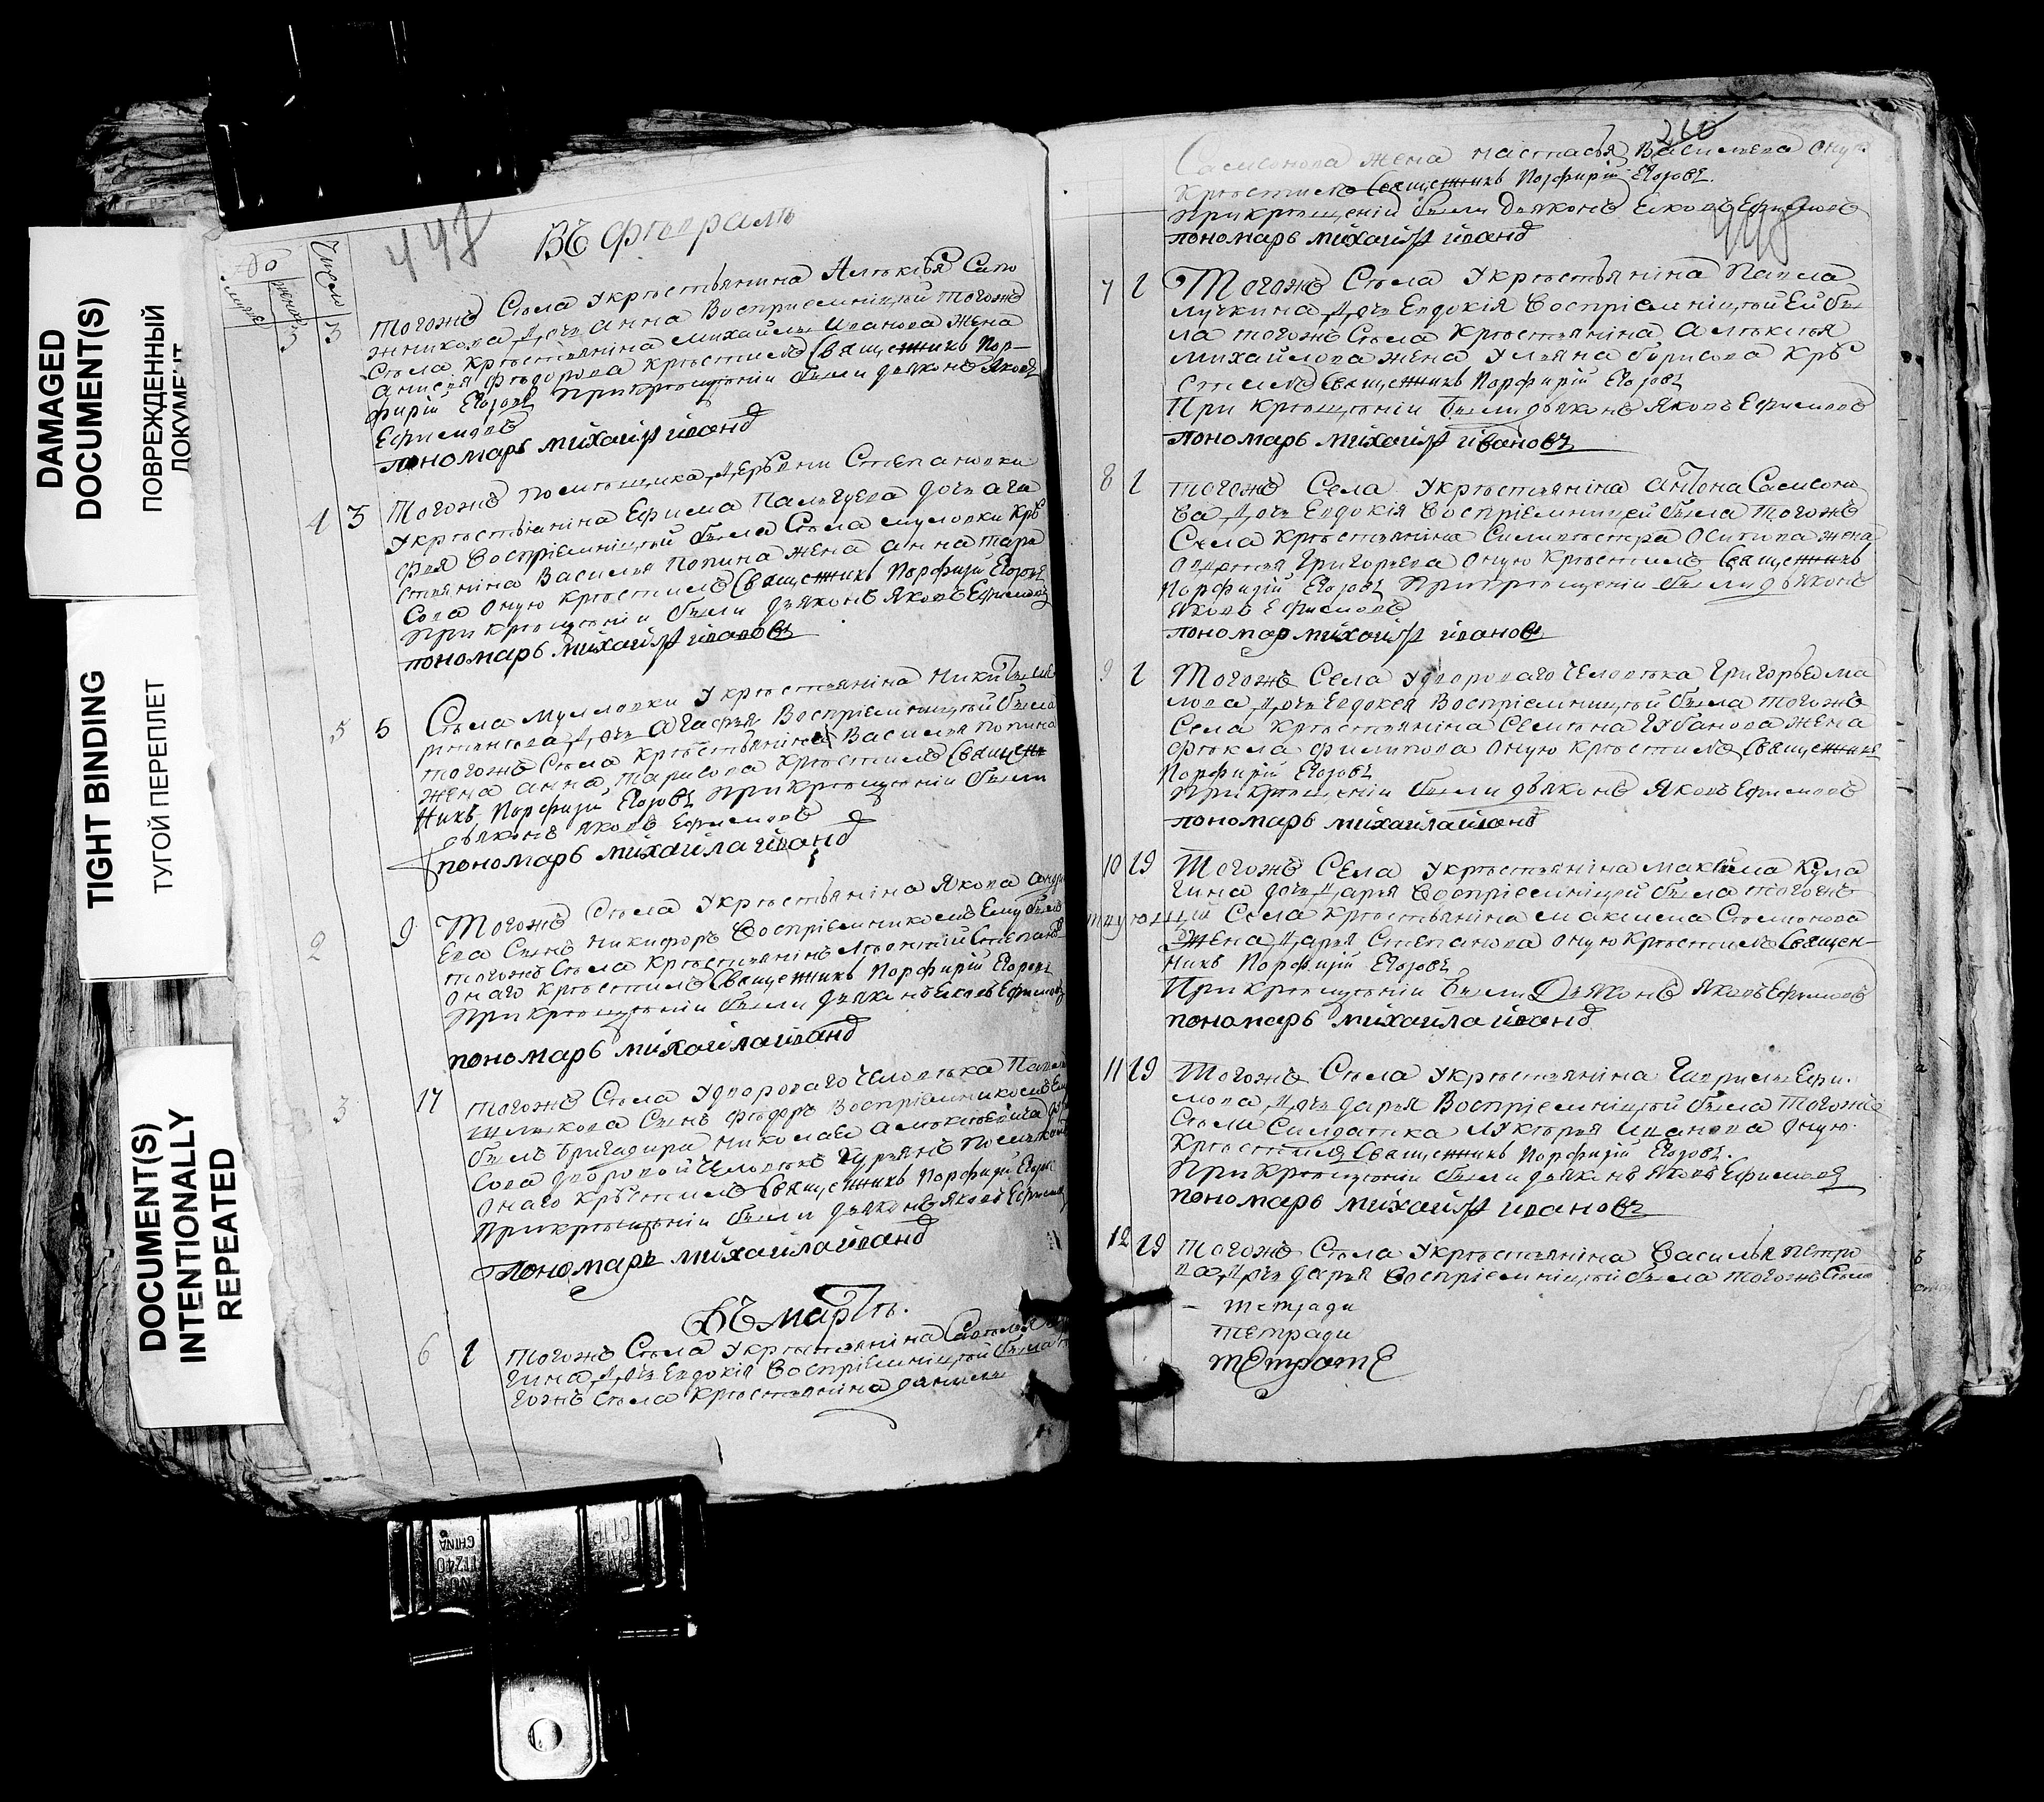 DAMAGED
DOCUMENT(S)
ПОВРЕЖДЕННЫЙ
ДОКУМЕНТ
TIGHT BINDING
ТУГОЙ ПЕРЕПЛЕТ
DOCUMENT(S)
INTENTIONALLY
REPEATED
447
Въ февралѣ
Число
3 3 тогожъ Села Укрѣстьянина Алѣксѣя Сапо
жникова дочь Анна Восприемницѣй тогожъ
Сѣла Крѣстьянина Михайлы Иванова жена
Анисья Фѣдорова крѣстилъ Священникъ Пор-
фирій Егоровъ При крѣщѣніи были дьяконъ Яковъ
Ефимовъ
пономарь михайла иванов
4 3 Тогожъ помѣщика дерѣвни Степановки
Укрѣстьянина Ефима Палгуева дочь Ага
фья Восприемницѣй была Сѣла муловки Крѣ
стьянина Василья Попина жена анна Тара
сова оную крѣстилъ Священникъ Порфирій Егоровъ
При крѣщѣніи были дьяконъ Яковъ Ефимовъ
пономарь михайла ивановъ
5 5 Сѣла Муловки Укрѣстьянина Никиты
дочь Агафья Восприемницѣй была
тогожъ Сѣла крѣстьянина Василья Попина
жена анна Тарасова крѣстилъ Священ
никъ Порфирій Егоровъ При крѣщѣніи были
дьяконъ Яковъ Ефимовъ
пономарь михайла иванов
2 9 Тогожъ Сѣла Укрѣстьянина Якова Андре
ева Сынъ Никифоръ Восприемникомъ Ему былъ
тогожъ Сѣла Крѣстьянинъ Лѣонтій Степанов
онаго крѣстилъ Священникъ Порфирій Егоровъ
При крѣщѣніи были дьяконъ Яковъ Ефимовъ
пономарь михайла иванов
3 17 тогожъ Сѣла Удворового Человѣка Павла
Сынъ Фѣдоръ Восприемникомъ Ему
былъ бригадира Николая Алѣксѣевича
дворовой Человѣкъ Гурьянъ
онаго крѣстилъ Священникъ Порфирій Егоровъ
При крѣщѣніи были дьяконъ Яковъ Ефимовъ
Пономарь михайла иванов
Въ мартѣ.
6 1 тогожъ Сѣла Укрѣстьянина Савѣлья
гина дочь Евдокія Восприемницѣй была то
гожъ Сѣла крѣстьянина данилы
260
448
Самсонова жена настасья Васильева оную
крѣстилъ Священникъ Порфирій Егоровъ.
При крѣщеніи были дьяконъ Яковъ Ефимовъ
пономарь михайла иванов
7 1 Тогожъ Сѣла Укрѣстьянина Павла
лучкина дочь Евдокія Восприемницѣй Ей бы
ла тогожъ Сѣла Крѣстьянина алѣксѣя
михайлова жена Ульяна борисова крѣ
стилъ Священникъ Порфирій Егоровъ
При крѣщѣніи были дьяконъ Яковъ Ефимовъ
пономарь михайла ивановъ
8 1 тогожъ Села Укрѣстьянина антона Самсоно
ва дочь Евдокія Восприемницей была тогожъ
Села крѣстьянина Силивѣстра Осипова жена
Григорьева оную крѣстилъ Священникъ
Порфирій Егоровъ При крѣщеніи были дьяконъ
Яковъ Ефимовъ
пономар михайла ивановъ
9 1 Тогожъ Села Удворового Человѣка Григорья ма
лова дочь Евдокея Восприемницѣй была тогожъ
Села Крѣстьянина Семѣна Губанова жена
Фѣкла Филипова оную крѣстилъ Священникъ
Порфирій Егоровъ
При крѣщеніи были дьяконъ Яковъ Ефимовъ
пономарь михайла иванов
10 19 Тогожъ Села Укрѣстьянина Максима Кула
гина дочь дарья Восприемницей была тогожъ
Села крѣстьянина максима Сѣмионова
жена дарья Степанова оную крѣстилъ Священ-
никъ Порфирій Егоровъ
При крѣщѣніи были Дьяконъ Яковъ Ефимовъ
пономарь михайла иванов
11 19 Тогожъ Сѣла Укрѣстьянина Гаврилы Ефи.
мова дочь дарья Восприемницѣй была тогожъ
Сѣла Салдатка Лукѣрья Иванова оную.
Крѣстилъ Священникъ Порфирій Егоровъ.
При крѣщѣніи были дьяконъ Яковъ Ефимовъ
пономарь михайла ивановъ
12 19 тогожъ Сѣла Укрѣстьянина Василья петро
ва дочь дарья Восприемницѣй была тогожъ Сѣла
тетради
тетради
тЕтратЕ